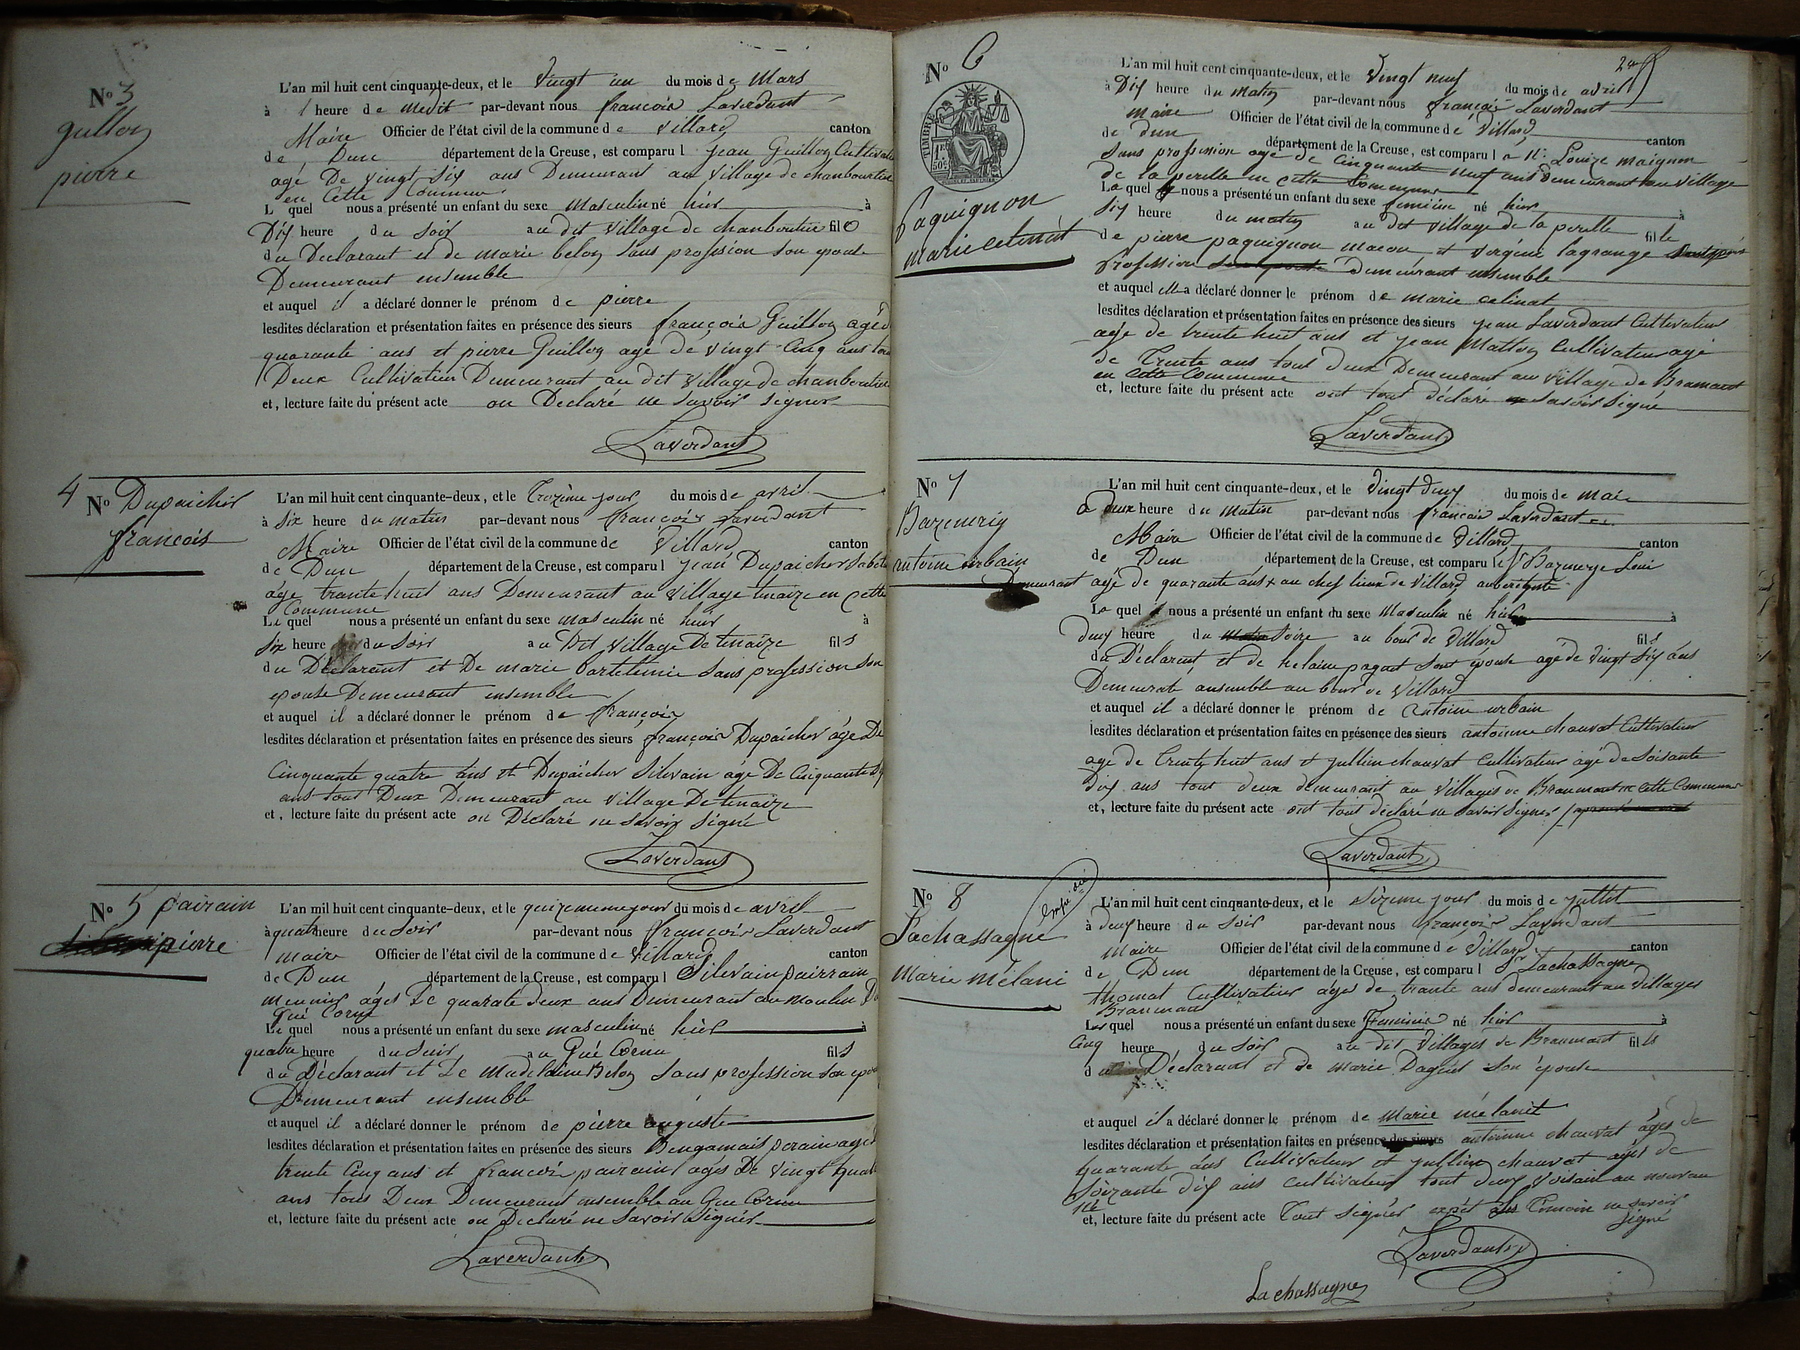 N° 3
guillon
pierre
L'an mil huit cent cinquante-deux, et le vingt un du mois de Mars
à 1 heure de midit par-devant nous françois Laverdant
Maire Officier de l'état civil de la commune de Villard canton
de Dun département de la Creuse, est comparu l jean Guillon Cultivate
agé De vingt six ans Demeurant au village de chanboutier
en Cette Commune
L quel nous a présenté un enfant du sexe Masculin né hier à
Dix heure du Soir au dit village de chanboutier fil
du Declarant et de marie belon sans profesion son epouse
Demeurant ensemble
et auquel il a déclaré donner le prénom de pierre
lesdites déclaration et présentation faites en présence des sieurs françois Guillon agé d
quarante ans et pierre Guillon agé de vingt Cinq ans tou
Deux Cultivateur Demeurant au dit village de chanboutier
et, lecture faite du présent acte on Declaré ne Savoir Signer
Laverdant
4 N° Dupaicher
françois
L'an mil huit cent cinquante-deux, et le Trezième jour du mois de avril
à six heure du matin par-devant nous françois Laverdant
Maire Officier de l'état civil de la commune de Villard canton
de Dun département de la Creuse, est comparu l jean Dupaicher Sabot
âge trante huit ans Demeurant au village tnaize en cette
Commune
Le quel nous a présenté un enfant du sexe masculin né hier à
six heure du Soir au Dit village De tnaize fils
du Déclarent et De marie Bartelemie sans profession son
epouse Demeurant ensemble
et auquel il a déclaré donner le prénom de françois
lesdites déclaration et présentation faites en présence des sieurs françois Dupaicher âge De
Cinquante quatre ans et Dupaicher Silvain âge De Cinquante
ans tout Deux Demeurant au village De tnaize
et, lecture faite du présent acte on Déclaré ne savoir Signé
Laverdant
N° 5 pairain
pierre
L'an mil huit cent cinquante-deux, et le quizememe jour du mois de avril
à quatre heure du Soir par-devant nous françois Laverdant
maire Officier de l'état civil de la commune de Villard canton
de Dun département de la Creuse, est comparu l Silvain pairrain
meunier âges De quarate deux ans Demeurant au moulin Du
Gué Cornu
Le quel nous a présenté un enfant du sexe masculin né hier à
quatre heure du Suir au Gué Cornu fils
du Déclarant et De Madelaine Belon Sans profession Son epou
Demeurant ensemble
et auquel il a déclaré donner le prénom de pierre auguste
lesdites déclaration et présentation faites en présence des sieurs Bengamais perain age
trente Cinq ans et françois pairain ages De vingt quat
ans tous Deux Demeurant ensemble au Gue Cornu
et, lecture faite du présent acte on Declaré ne Savoir Signér
Laverdant
N° 6
TIMBRE
1F. 50c.
paquignon
marie celinat
L'an mil huit cent cinquante-deux, et le vingt neuf du mois de avril
à Dix heure du matin par-devant nous françois Laverdant
maire Officier de l'état civil de la commune de Villard canton
de dun département de la Creuse, est comparu l Louize maignon
Sans profession age de Cinquante neuf ans demeurant au village
de la perelle en cette Commune
La quel nous a présenté un enfant du sexe feminin né hier à
Six heure du matin au dit village de la perelle fil le
de pierre paquignon macon et Virgéne lagrange Sans
profession Demeurant ensemble
et auquel elle a déclaré donner le prénom de marie celinat
lesdites déclaration et présentation faites en présence des sieurs jean Laverdant Cultivateur
age de trente huit ans et jean Matton Cultivateur agé
de Trente ans tout deux Demeurant au village de Bramant
en Cette Commune
et, lecture faite du présent acte ont tout declaré ne Savoir Signé
Laverdant
N° 7
Bazeneriy
antoine urbain
L'an mil huit cent cinquante-deux, et le vingt deux du mois de mai
à deux heure du Matin par-devant nous françois Laverdant
Maire Officier de l'état civil de la commune de Villard canton
de Dun département de la Creuse, est comparu l
Demeurant agé de quarante ans au chef lieux de Villard
Le quel nous a présenté un enfant du sexe Masculin né hier à
deux heure du Soire au bour de Villard fils
du Déclarent et de helaine pagaut Sont épouse agé de vingt Six ans
Demeurant ansemble au bour de Villard
et auquel il a déclaré donner le prénom de Antoine urbain
lesdites déclaration et présentation faites en présence des sieurs antoinne chauvat Cultivateur
agé de trente huit ans et jullien chauvat Cultivateur âgé de Soisante
dix ans tout deux demeurant au Villages de Braumant en Cette Commune
et, lecture faite du présent acte ont tout declaré ne Savoir Signer
Laverdant
N° 8
Lachassagne
Marie Mélani
L'an mil huit cent cinquante-deux, et le Sizeme jour du mois de juillet
à deux heure du Soir par-devant nous françois Laverdant
maire Officier de l'état civil de la commune de Villard canton
de Dun département de la Creuse, est comparu l Sr Lachassagne
thomat Cultivateur âgés de trante ans demeurant au Villages
Braumant
Le quel nous a présenté un enfant du sexe feminin né hier à
Cinq heure du Soir au dit Villages de Braumant fil le
du Déclarant et de marie Daguet Son épouse
et auquel il a déclaré donner le prénom de Marie mélanit
lesdites déclaration et présentation faites en présence des sieurs antoinne chauvat âges de
quarante ans Cultivateur et jullien chauvat ages de
Soizante dix ans cultivateur tout deux voisain au nouveau
né
et, lecture faite du présent acte Tout Signer exept les Temoin ne savoir
Signé
Laverdant
Lachassagne